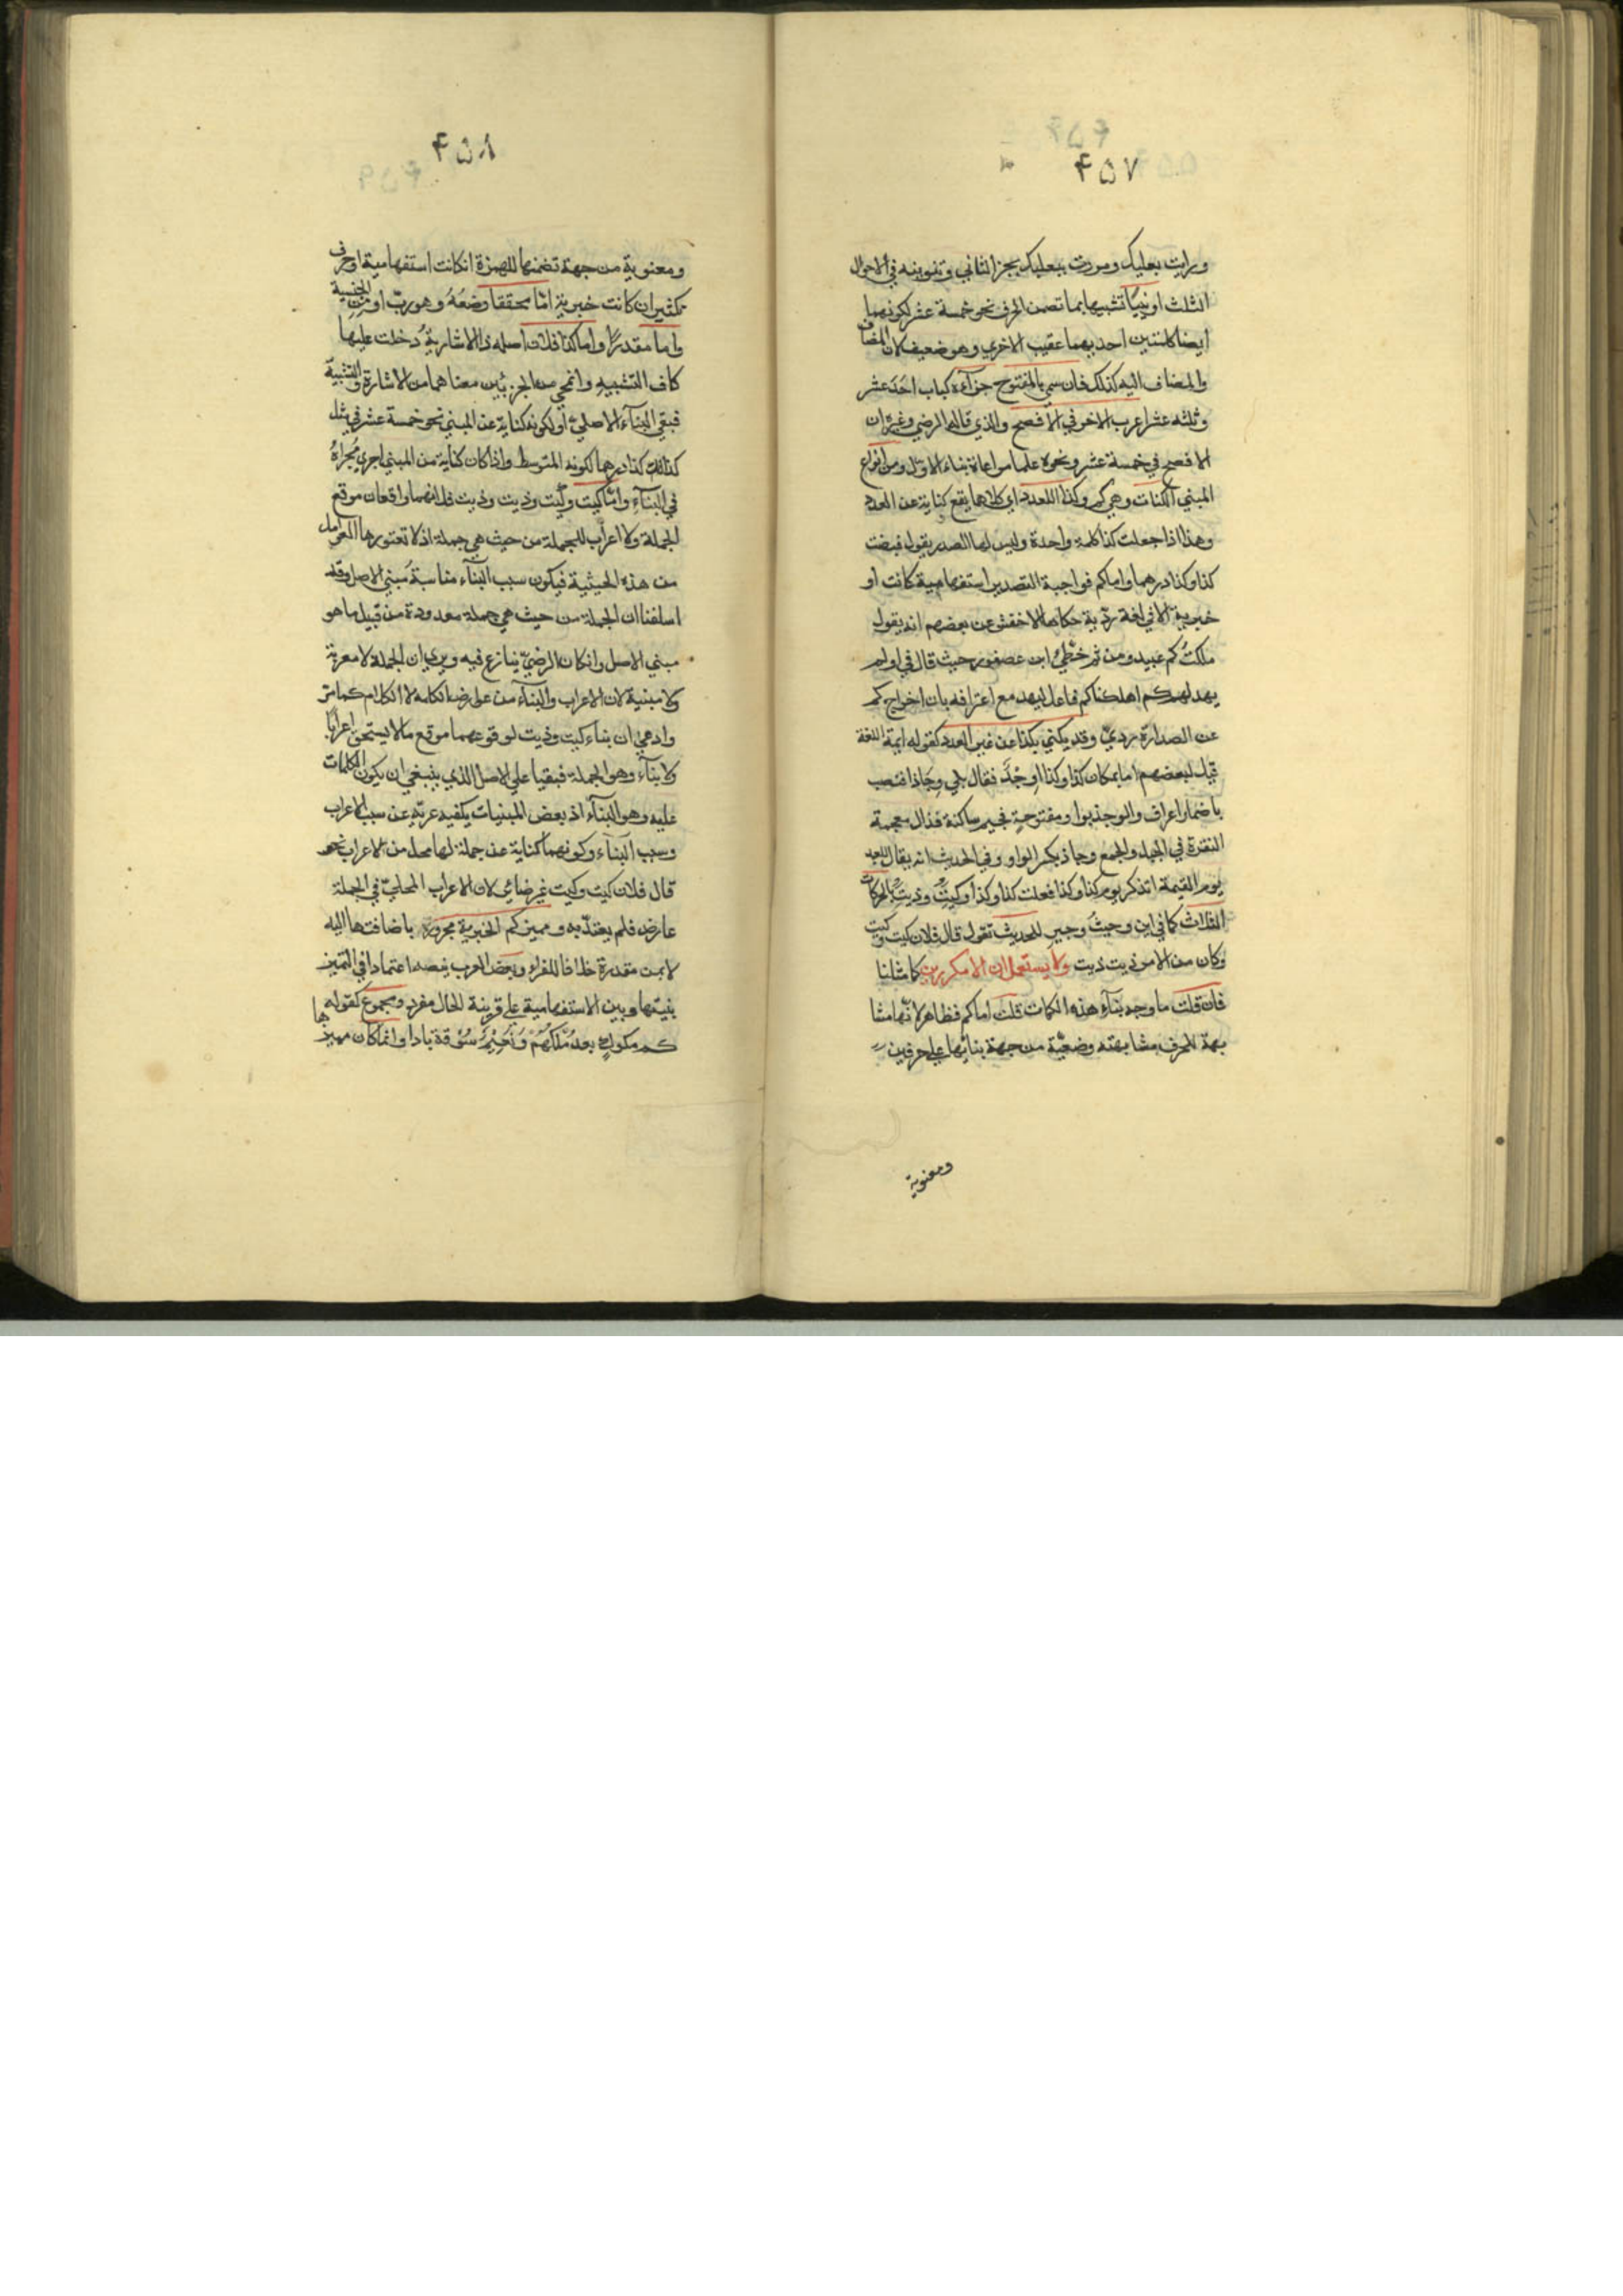 ۴۵۷
ورايت بعلبك ومررت ببعلبك بجر الثاني وتنوينه في الاحوال
الثلث او بنيا تشبيها بما تضمن الحرف نحو خمسة عشر لكونهما
ايضا كلمتين احديهما عقيب الاخري وهو ضعيف لان المضاف
والمضاف اليه كذلك فان سمي بالمفتوح جزآءه كباب احَدَ عشر
وثلثه عشر اعرب الاخر في الافصح والذي قاله الرضي وغيره ان
الافصح في خمسة عشر ونحوه علما مراعاة بناء الاول ومن انواع
المبني الكنات وهي كم وكذا للعدد اي كلاهما يقع كناية عن العدد
وهذا اذا جعلت كذا كلمة واحدة وليس لها الصدر يقول قبضت
كذا وكذا درهما واما كم فواجبة التصدير استفهامية كانت او
خبرية الا في لغة رديّة حكاها الاخفش عن بعضهم انه يقول
ملكتُ كم عبيد ومن ثم خُطّئ ابن عصفور حيث قال في اولم
يهد لهم كم اهلكنا كم فاعل ليهد مع اعترافه بان اخراج كم
عن الصدارة رديّ وقد يكني بكذا عن غير العدد كقوله ايمة اللغة
قيل لبعضهم اما بمكان كذا وكذا وجْذَ فقال بلي وِجاذا فنصب
باضمار اعراف والوجذ بواو مفتوحة فجيم ساكنة فذال معجمة
النقرة في الجبل والجمع وجاذ بكسر الواو وفي الحديث انه يقال للعبد
يوم القيمة اتذكر يوم كذا وكذا فعلت كذا وكذا وكيت وذيت بالحركات
الثلاث كما في اين وحيثُ وجيرِ للحديث تقول قال فلان كيت وكيت
وكان من الامر ذيت ذيت ولا يستعملان الا مكررين كما مثلنا
فان قلت ما وجه بنآء هذه الكمات قلت اما كم فظاهر لانها مشا
بهة للحرف مشابهته وضعيّة من جهة بنائها علي حرفين
ومعنوية
۴۵۸
ومعنوية من جهة تضمنها للهمزة انكانت استفهامية او حرف
تكثير ان كانت خبرية امّا محققا وضعُهُ وهو ربّ او من الجنسية
واما مقدرًا واما كذا فلان اصله ذا الاشاريةُ دخلت عليها
كاف التشبيه وانمحي من الجزئين معناهما من الاشارة والتشبية
فبقي البنآء الاصليّ او لكونه كناية عن المبني نحو خمسة عشر في مثل
كذلك كذا درهما لكونه المتوسط واذا كان كناية من المبني اجري مُجراهُ
في البنآء وامّا كيت وكيت وذيت وذيت فلانهما واقعان موقع
الجملة ولا اعراب للجملة من حيث هي جملة اذ لا تعتورها العوامل
من هذه الحيثية فيكون سبب البنآء مناسبةَ مبني الاصل وقد
اسلفنا ان الجملة من حيث هي جملة معدودة من قبيل ما هو
مبني الاصل وانكان الرضيّ ينازع فيه ويري ان الجملة لا معربة
ولا مبنية لان الاعراب والبنآء من عوارض الكلمة لا الكلام كما مرّ
وادعي ان بناء كيت وذيت لوقوعهما موقع ما لا يستحق اعرابا
ولا بنآء وهو الجملة فبقيا علي الاصل الذي ينبغي ان يكون الكلمات
عليه وهو البنآء اذ بعض المبنيات يكفيه عريّه عن سبب الاعراب
وسبب البنآء وكونهما كناية عن جملة لها محل من الاعراب نحو
قال فلان كيت وكيت غير ضائر لان الاعراب المحليّ في الجملة
عارض فلم يعتدّ به ومميز كم الخبرية مجرور باضافتها اليه
لا بمن مقدرة خلافا للفراء وبعض العرب ينصبه اعتمادا في التميز
بينها وبين الاستفهامية علي قرينة الحال مفرد ومجموع كقوله
كم ملوك بعد مُلكُهُمْ وَنعيم سُوقة بادا وانما كان مميزها